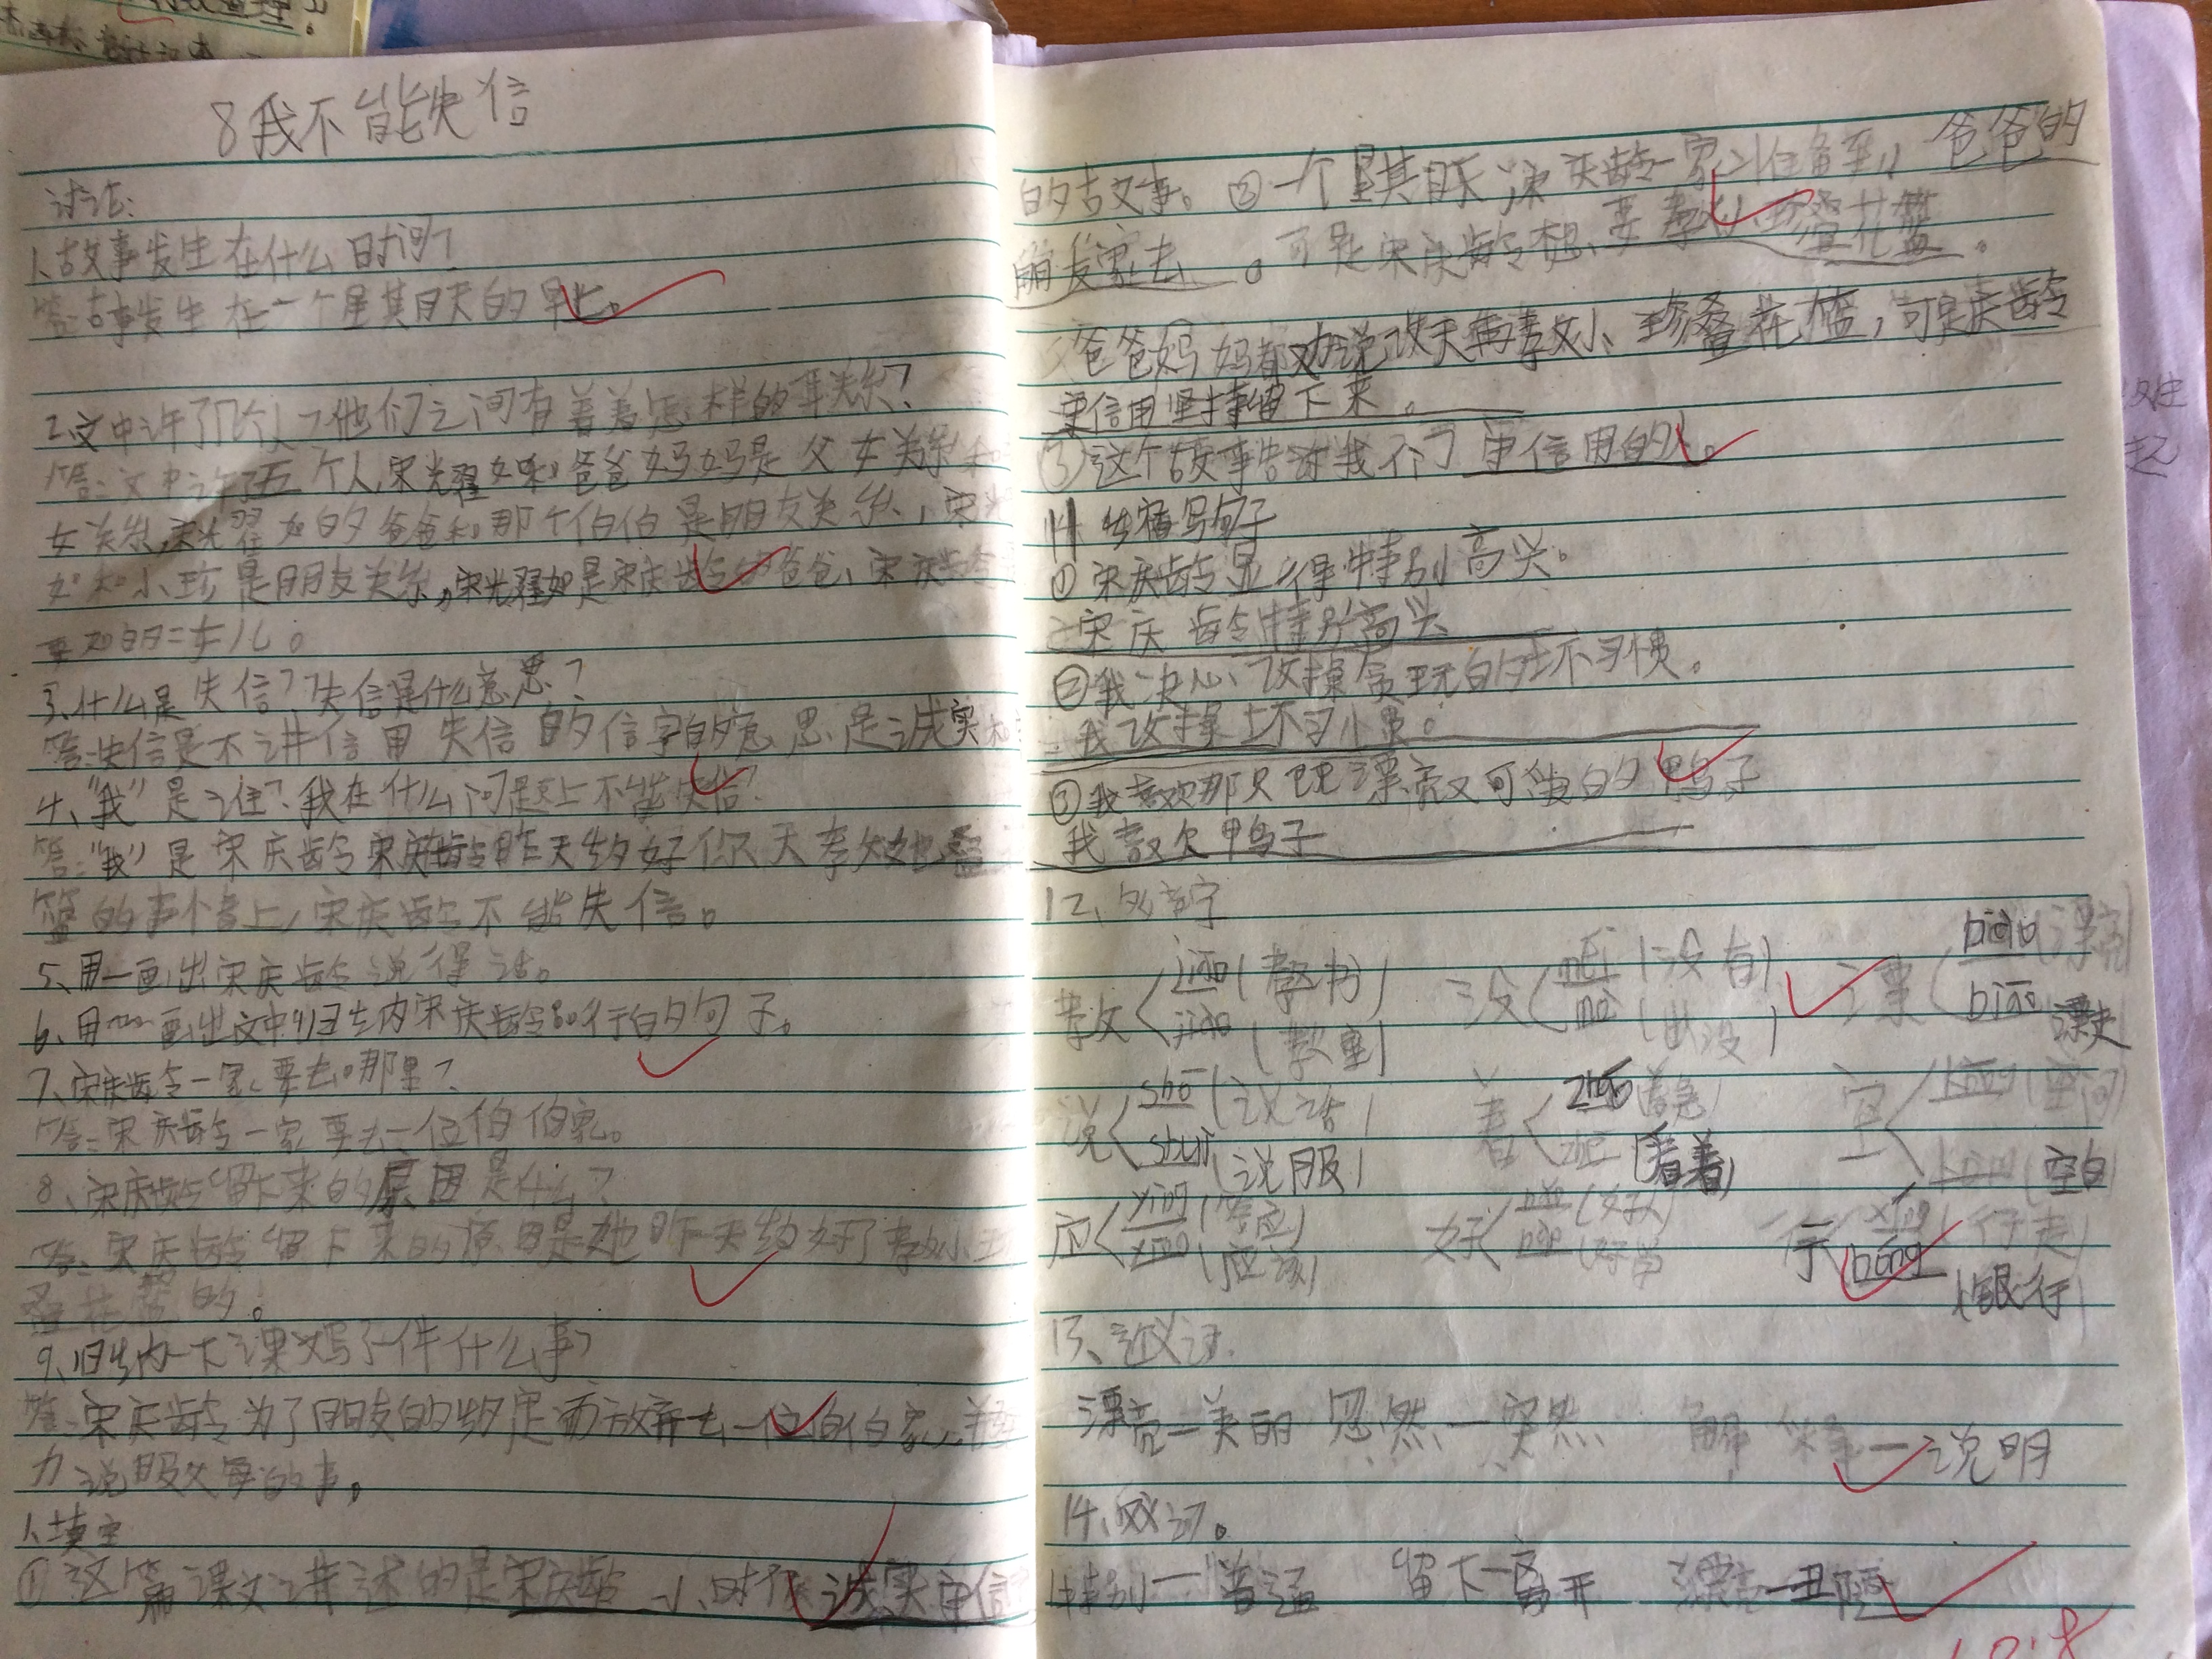 8我不能失信
讨论:
1、故事发生在什么时间?
答:故事发生在一个星期天的早上。
2、文中讲了几个人?他们之间有着着怎样的关系?
答:文中讲了五个人,宋光耀如和爸爸妈妈是父女关系和
女关系,宋光耀如的爸爸和那个伯伯是朋友关系,宋
如和小珍是朋友关系,宋光耀如是宋庆龄的爸爸、宋庆龄
的二女儿。
3、什么是失信?失信是什么意思?
答:失信是不讲信用失信的信字的意思是诚实
4、“我”是谁?我在什么问题上不能失信?
答:“我”是宋庆龄宋庆龄昨天约好你天教她叠
篮的事个音上,宋庆龄不能失信。
5、用一画出宋庆龄说得话。
6、用﹏画出文中归纳宋庆龄的句子。
7、宋庆龄一家要去哪里?
答:宋庆龄一家要去一位伯伯家。
8、宋庆龄留下来的原因是什么?
答:宋庆龄留下来的原因是她昨天约好了教小珍
叠花篮的。
9、归纳一下课文写了一件什么事?
答:宋庆龄为了朋友的约定而放弃去一位伯伯家,
力说服父母的事。
1、填空
①这篇课文讲述的是宋庆龄小时候诚实守信
的故事。②一个星期天宋庆龄一家准备到爸爸的
朋友家去。可是宋庆龄想要教小珍叠花篮。
爸爸妈妈都劝说改天再教小珍叠花篮,可宋庆龄
守信用坚持留下来。
③这个故事告诉我们了守信用的人。
11缩写句子
①宋庆龄显得特别高兴。
宋庆龄特别高兴
②我决心改掉贪玩的坏习惯。
我改掉坏习惯。
③我喜欢那只既漂亮又可爱的鸭子
我喜欢鸭子
12、多音字
教 jiāo(教书) 没 méi(没有) 漂 piào(漂亮)
jiào(教室) mò(出没) piāo 漂夫
说 shō(说话) 着 zháo(着急) 空 kōng(空间)
shuì(说服) zhe(看着) kòng(空白)
应 yìng(答应) 好 hǎo(好人) 行 xíng(行走)
yīng(应该) hào(好学) háng(银行)
13、近义词
漂亮一美丽 忽然一突然 解释一说明
14、反义词。
特别一普通 留下一离开 漂亮一丑陋